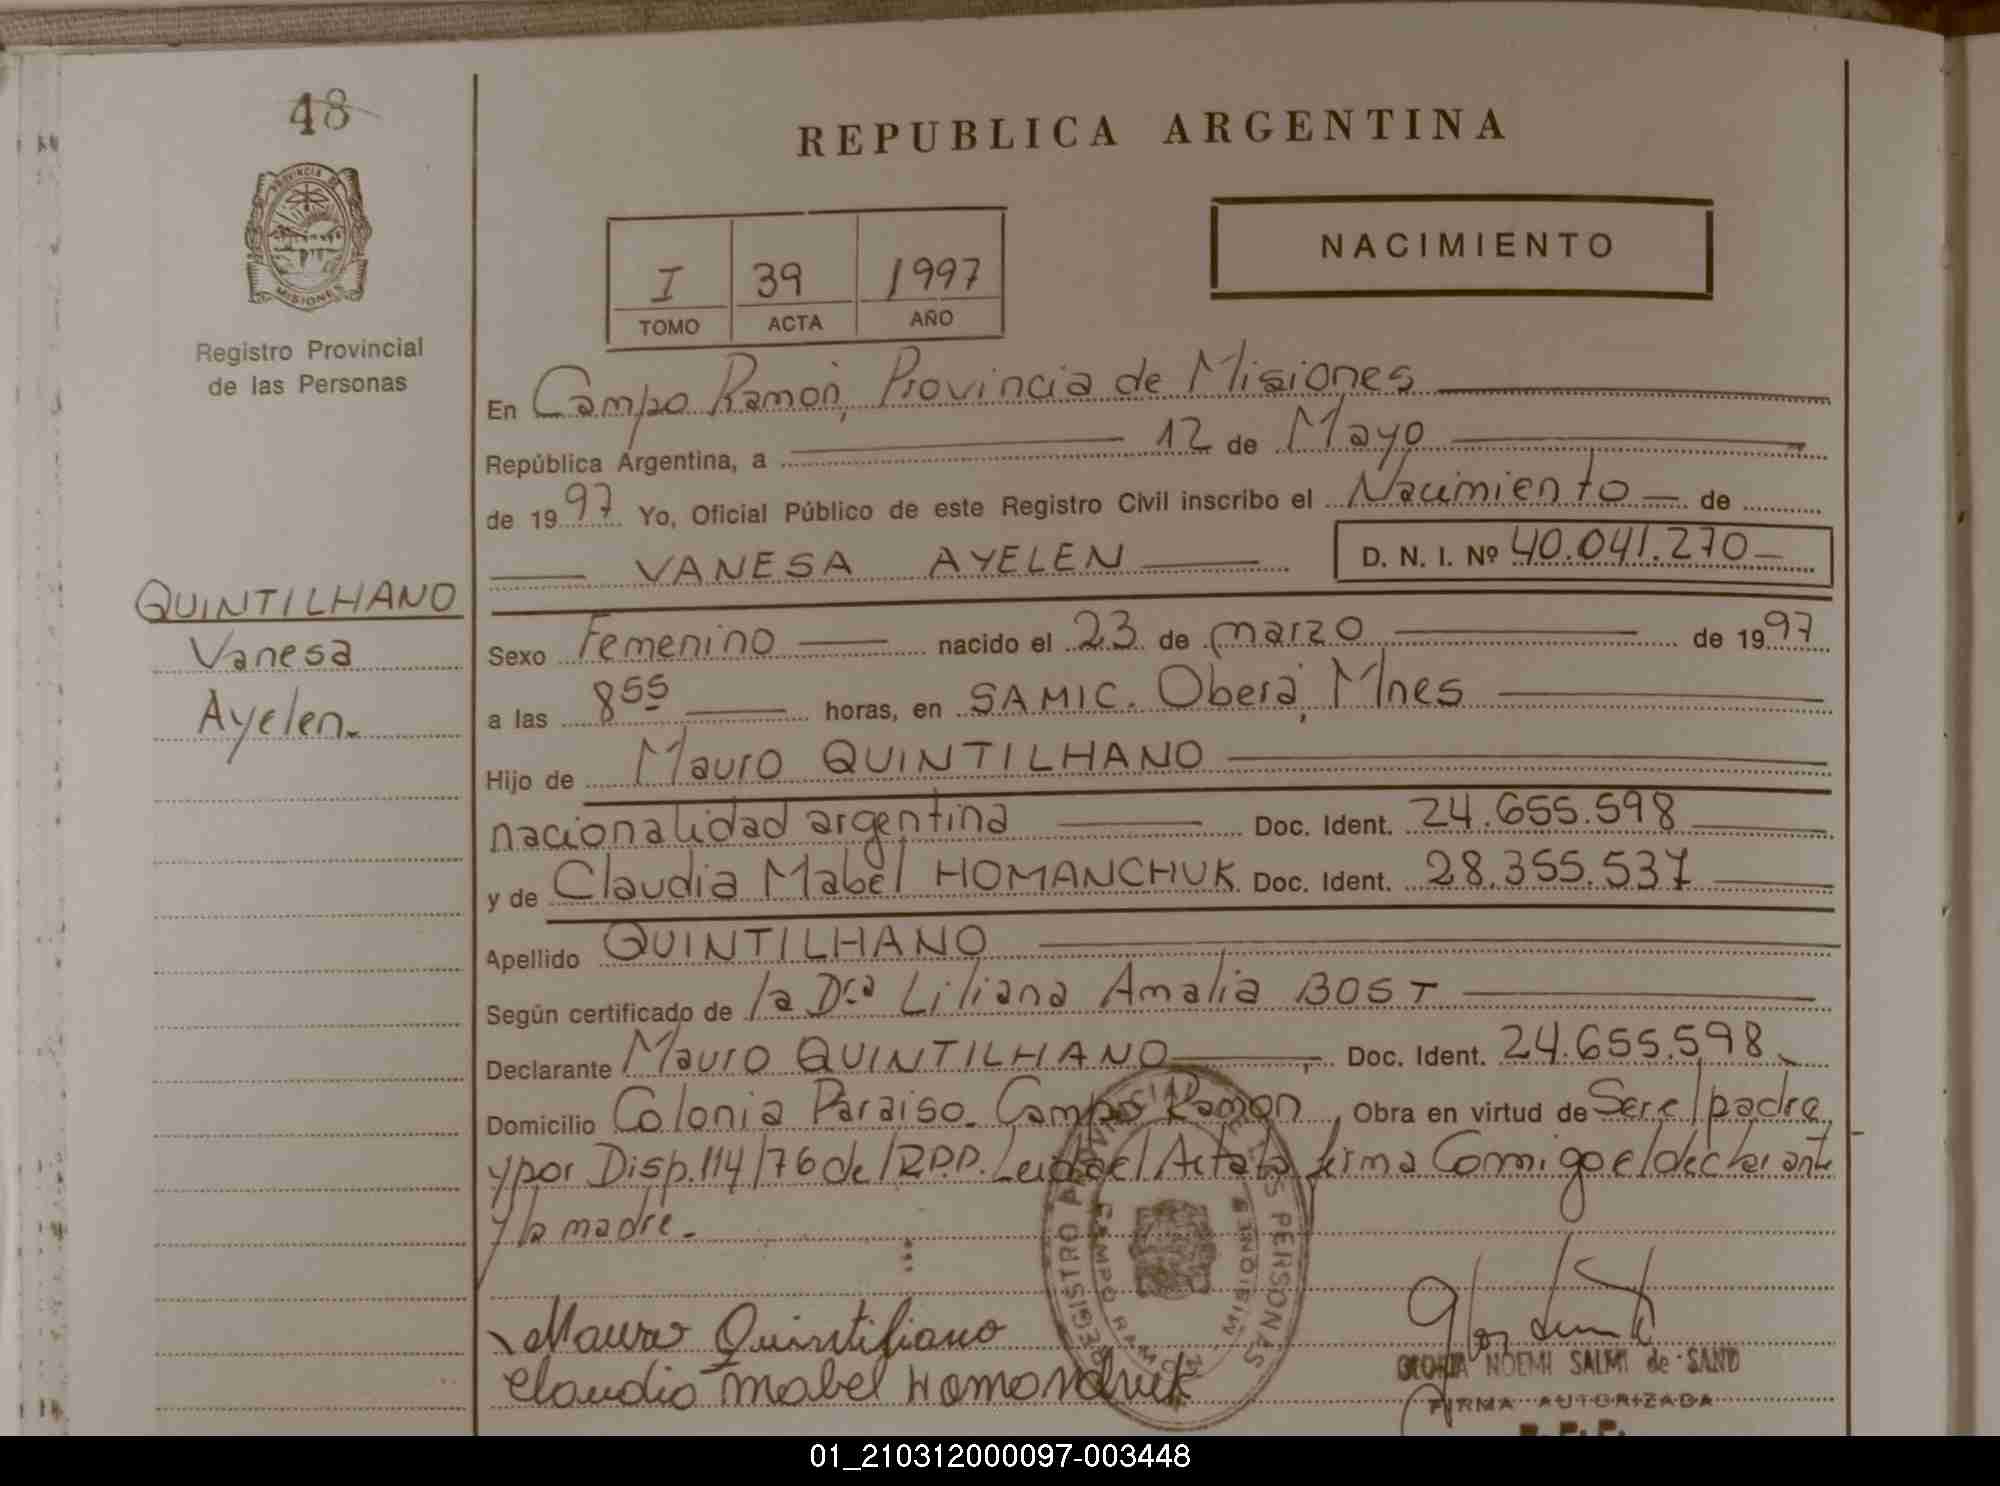 48
PROVINCIA DE
MISIONES
Registro Provincial
de las Personas
QUINTILHANO
Vanesa
Ayelen.
REPUBLICA ARGENTINA
NACIMIENTO
I 39 1997
TOMO ACTA AÑO
En Campo Ramón, Provincia de Misiones
República Argentina, a 12 de Mayo
de 1997 Yo, Oficial Público de este Registro Civil inscribo el Nacimiento de
VANESA AYELEN D. N. I. Nº 40.041.270
Sexo Femenino nacido el 23 de marzo de 1997
a las 8 55 horas, en SAMIC. Oberá, Mnes
Hijo de Mauro QUINTILHANO
nacionalidad argentina Doc. Ident. 24.655.598
y de Claudia Mabel HOMANCHUK Doc. Ident. 28.355.537
Apellido QUINTILHANO
Según certificado de la Dra Liliana Amalia BOST
Declarante Mauro QUINTILHANO, Doc. Ident. 24.655.598
Domicilio Colonia Paraiso. Campo Ramon, Obra en virtud de Ser el padre
y por Disp. 114/76 de/ RPP. Leida el Acta la firma Conmigo el declarante
y la madre.
REGISTRO PROVINCIAL DE LAS PERSONAS
CAMPO RAMON MISIONES
Mauro Quintiliano
Claudia Mabel Homanchuk
GLORIA NOEMI SALMI de SAND
FIRMA AUTORIZADA
01_210312000097-003448